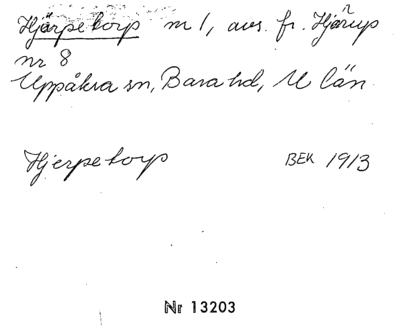 Hjärpetorp nr 1, avs. fr. Hjärup
nr 8
Uppåkra sn, Bara hd, M län
Hjerpetorp BEK 1913
Nr 13203